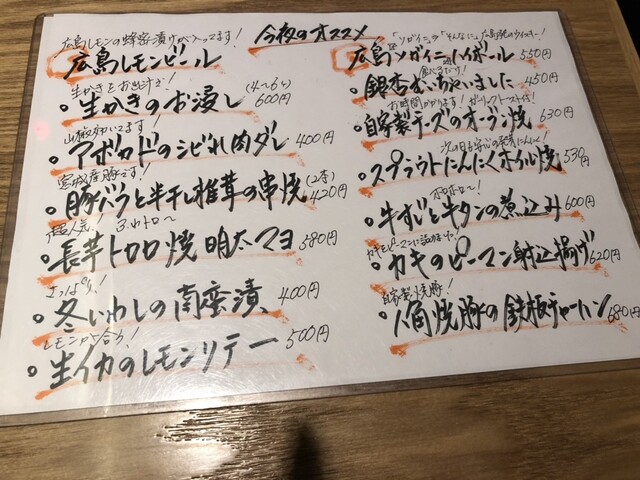 今夜のオススメ
広島レモンの蜂蜜漬けが入ってます!
広島レモンビール
生かきをお出汁で!
・生かきのお浸し (4〜6ヶ) 600円
山椒効いてます!
・アボカドのシビれ肉ダレ 400円
宮城産豚です!
・豚バラと半干し椎茸の串焼 (2本) 420円
超人気!
・長芋トロロ焼 明太マヨ 580円
さっぱり!
・冬いわしの南蛮漬 400円
レモンが合う!
・生イカのレモンソテー 500円
広島ソガイニハイボール 550円
食べるだけ!
・銀杏むいちゃいました 450円
お時間かかります! ガーリックトースト付!
・自家製チーズのオーブン焼 630円
・スプラウトにんにくオイル焼 530円
ホロホロ〜!
・牛すじと牛タンの煮込み 600円
・カキのピーマン射込揚げ 620円
自家製焼豚!
・角焼豚の鉄板チャーハン 680円